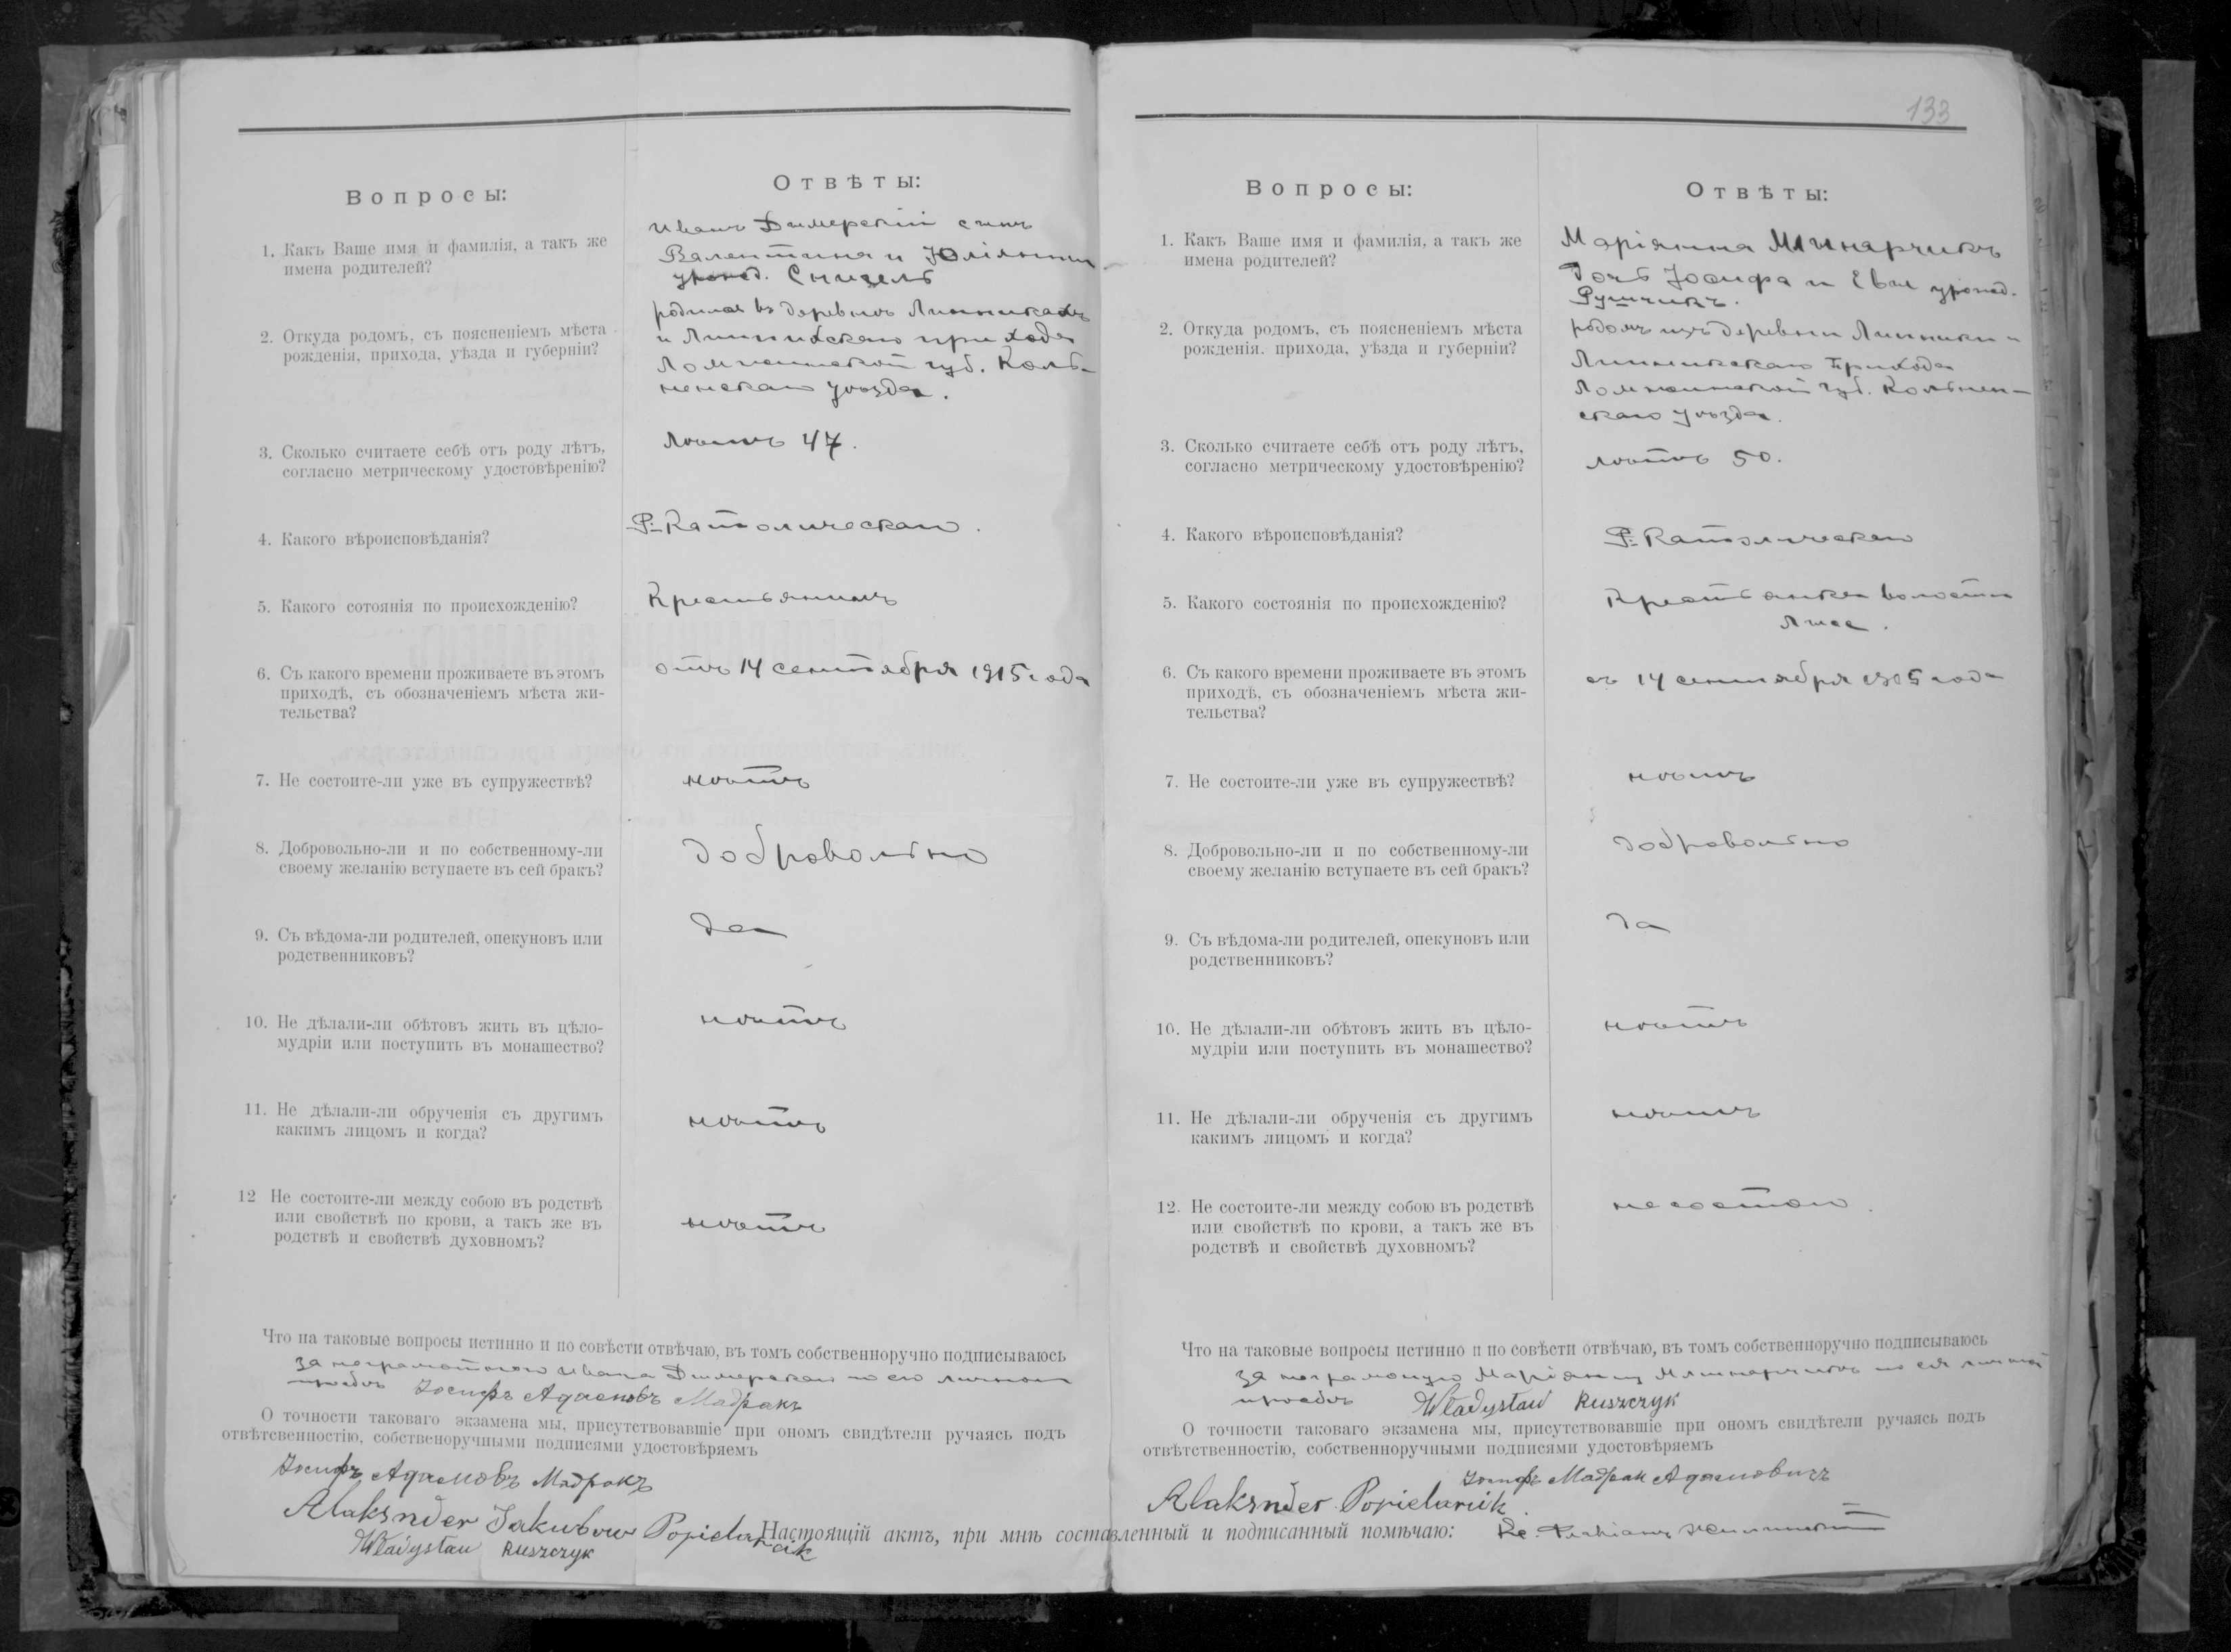 133
Вопросы:
Отвѣты:
1. Какъ Ваше имя и фамилія, а такъ же
имена родителей?
Иванъ Дымерскій сынъ
Валентина и Юліянны
урожд.
2. Откуда родомъ, съ поясненіемъ мѣста
рожденія, прихода, уѣзда и губерніи?
родился въ деревнѣ Липникахъ
и Липникскаго прихода
Ломжинской губ. Коль-
ненскаго уѣзда.
3. Сколько считаете себѣ отъ роду лѣтъ,
согласно метрическому удостовѣренію?
лѣтъ 47.
4. Какого вѣроисповѣданія?
Р-Католическаго.
5. Какого сотоянія по происхожденію?
Крестьянинъ
6. Съ какого времени проживаете въ этомъ
приходѣ, съ обозначеніемъ мѣста жи-
тельства?
отъ 14 сентября 1915 года
7. Не состоите-ли уже въ супружествѣ?
нѣтъ
8. Добровольно-ли и по собственному-ли
своему желанію вступаете въ сей бракъ?
добровольно
9. Съ вѣдома-ли родителей, опекуновъ или
родственниковъ?
да
10. Не дѣлали-ли обѣтовъ жить въ цѣло-
мудріи или поступить въ монашество?
нѣтъ
11. Не дѣлали-ли обрученія съ другимъ
какимъ лицомъ и когда?
нѣтъ
12 Не состоите-ли между собою въ родствѣ
или свойствѣ по крови, а такъ же въ
родствѣ и свойствѣ духовномъ?
нѣтъ
Что на таковые вопросы истинно и по совѣсти отвѣчаю, въ томъ собственноручно подписываюсь
за неграмотнаго Ивана Дымерскаго по его личной
просьбѣ Іосифъ Адамовъ Мадракъ
О точности таковаго экзамена мы, присутствовавшіе при ономъ свидѣтели ручаясь подъ
отвѣтсвенностію, собственоручными подписями удостовѣряемъ
Іосифъ Адамовъ Мадракъ
Alaksnder Jakubow Popielarcik
Władysław Ruszczyk
Вопросы:
Отвѣты:
1. Какъ Ваше имя и фамилія, а такъ же
имена родителей?
Маріянна Млинарчикъ
дочь Іосифа и Евы урожд.
Рущикъ.
2. Откуда родомъ, съ поясненіемъ мѣста
рожденія. прихода, уѣзда и губерніи?
родомъ изъ деревни Липники и
Липникскаго Прихода
Ломжинской губ. Кольнен-
скаго уѣзда.
3. Сколько считаете себѣ отъ роду лѣтъ,
согласно метрическому удостовѣренію?
лѣтъ 50.
4. Какого вѣроисповѣданія?
Р-Католическаго
5. Какого состоянія по происхожденію?
Крестьянка волости
6. Съ какого времени проживаете въ этомъ
приходѣ, съ обозначеніемъ мѣста жи-
тельства?
съ 14 сентября года
7. Не состоите-ли уже въ супружествѣ?
нѣтъ
8. Добровольно-ли и по собственному-ли
своему желанію вступаете въ сей бракъ?
добровольно
9. Съ вѣдома-ли родителей, опекуновъ или
родственниковъ?
да
10. Не дѣлали-ли обѣтовъ жить въ цѣло-
мудріи или поступить въ монашество?
нѣтъ
11. Не дѣлали-ли обрученія съ другимъ
какимъ лицомъ и когда?
нѣтъ
12. Не состоите-ли между собою въ родствѣ
или свойствѣ по крови, а такъ же въ
родствѣ и свойствѣ духовномъ?
не состою.
Что на таковые вопросы истинно и по совѣсти отвѣчаю, въ томъ собственноручно подписываюсь
за неграмотную Маріянну Млинарчикъ по ея личной
просьбѣ Władysław Ruszczyk
О точности таковаго экзамена мы, присутствовавшіе при ономъ свидѣтели ручаясь подъ
отвѣтственностію, собственноручными подписями удостовѣряемъ
Іосифъ Мадрак Адамовичъ
Alaksnder Popielarcik
Настоящій актъ, при мнѣ составленный и подписанный помѣчаю: